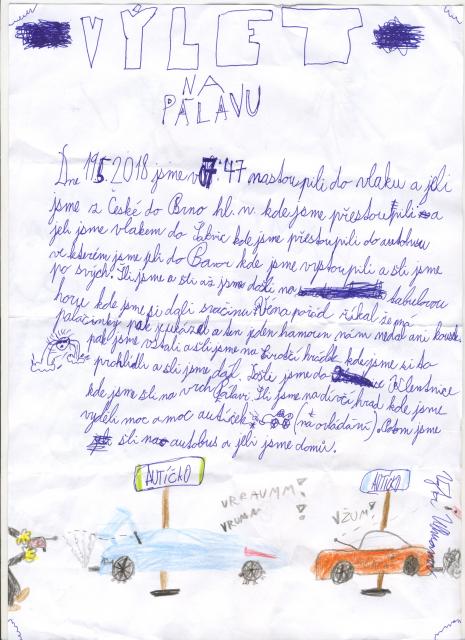 VÝLET
NA
PÁLAVU
Dne 19.5.2018 jsme v 7:47 nastoupili do vlaku a jeli
jsme z České do Brno hl. n. kde jsme přestoupili a
jeli jsme vlakem do Zaječí kde jsme přestoupili do autobusu
ve kterém jsme jeli do kde jsme vystoupili a šli jsme
po svých. Šli jsme a šli až jsme došli na
horu kde jsme si dali svačinu pořád říkal že má
palačinky pak je ukázal a ten jeden nám nedal ani kousek
pak jsme vstali a šli jsme na Sirotčí hrádek kde jsme si ho
prohlídli a šli jsme dál. Došli jsme do Klentnice
kde jsme šli na vrch Pálavi. Šli jsme na dívčí hrad kde jsme
viděli moc a moc autíček (na ovládání). Potom jsme
šli na autobus a jeli jsme domů.
AUTÍČKO
AUTÍČKO
VRRAUMM!
VRUMM
VŽUM!